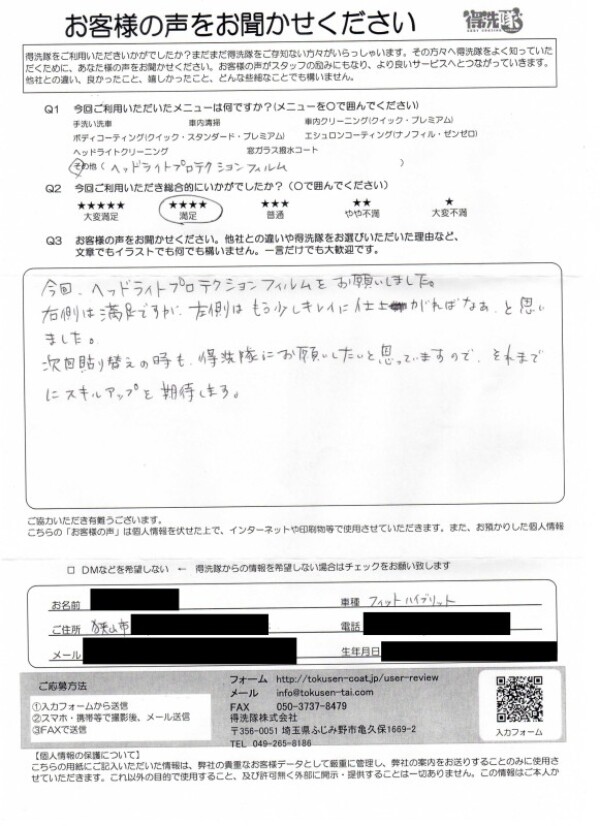 お客様の声をお聞かせください
得洗隊
得洗隊をご利用いただきいかがでしたか?まだまだ得洗隊をご存知ない方々がいらっしゃいます。その方々へ得洗隊をよく知っていた
だくために、あなた様の声をお聞かせください。お客様の声がスタッフの励みにもなり、より良いサービスへとつながっていきます。
他社との違い、良かったこと、嬉しかったこと、どんな些細なことでも構いません。
Q1 今回ご利用いただいたメニューは何ですか?(メニューを○で囲んでください)
手洗い洗車 車内清掃 車内クリーニング(クイック・プレミアム)
ボディコーティング(クイック・スタンダード・プレミアム) エシュロンコーティング(ナノフィル・ゼンゼロ)
ヘッドライトクリーニング 窓ガラス撥水コート
その他(ヘッドライトプロテクションフィルム)
Q2 今回ご利用いただき総合的にいかがでしたか?(○で囲んでください)
★★★★★ ★★★★ ★★★ ★★ ★
大変満足 満足 普通 やや不満 大変不満
Q3 お客様の声をお聞かせください。他社との違いや得洗隊をお選びいただいた理由など、
文章でもイラストでも何でも構いません。一言だけでも大歓迎です。
今回、ヘッドライトプロテクションフィルムをお願いしました。
右側は満足ですが、左側はもう少しキレイに仕上がればなぁ、と思い
ました。
次回貼り替えの時も、得洗隊にお願いしたいと思っていますので、それまで
にスキルアップを期待します。
ご協力いただき有難うございます。
こちらの「お客様の声」は個人情報を伏せた上で、インターネットや印刷物等で使用させていただきます。また、お預かりした個人情報
□ DMなどを希望しない ← 得洗隊からの情報を希望しない場合はチェックをお願い致します
お名前 車種 フィットハイブリット
ご住所 狭山市 電話
メール 生年月日
ご応募方法
①入力フォームから送信
②スマホ・携帯等で撮影後、メール送信
③FAXで送信
フォーム http://tokusen-coat.jp/user-review
メール info@tokusen-tai.com
FAX 050-3737-8479
得洗隊株式会社
〒356-0051 埼玉県ふじみ野市亀久保1669-2
TEL 049-265-8186
入力フォーム
【個人情報の保護について】
こちらの用紙にご記入いただいた情報は、弊社の貴重なお客様データとして厳重に管理し、弊社の案内をお送りすることのみに使用さ
せていただきます。これ以外の目的で使用すること、及び許可無く外部に開示・提供することは一切ありません。この情報はご本人か